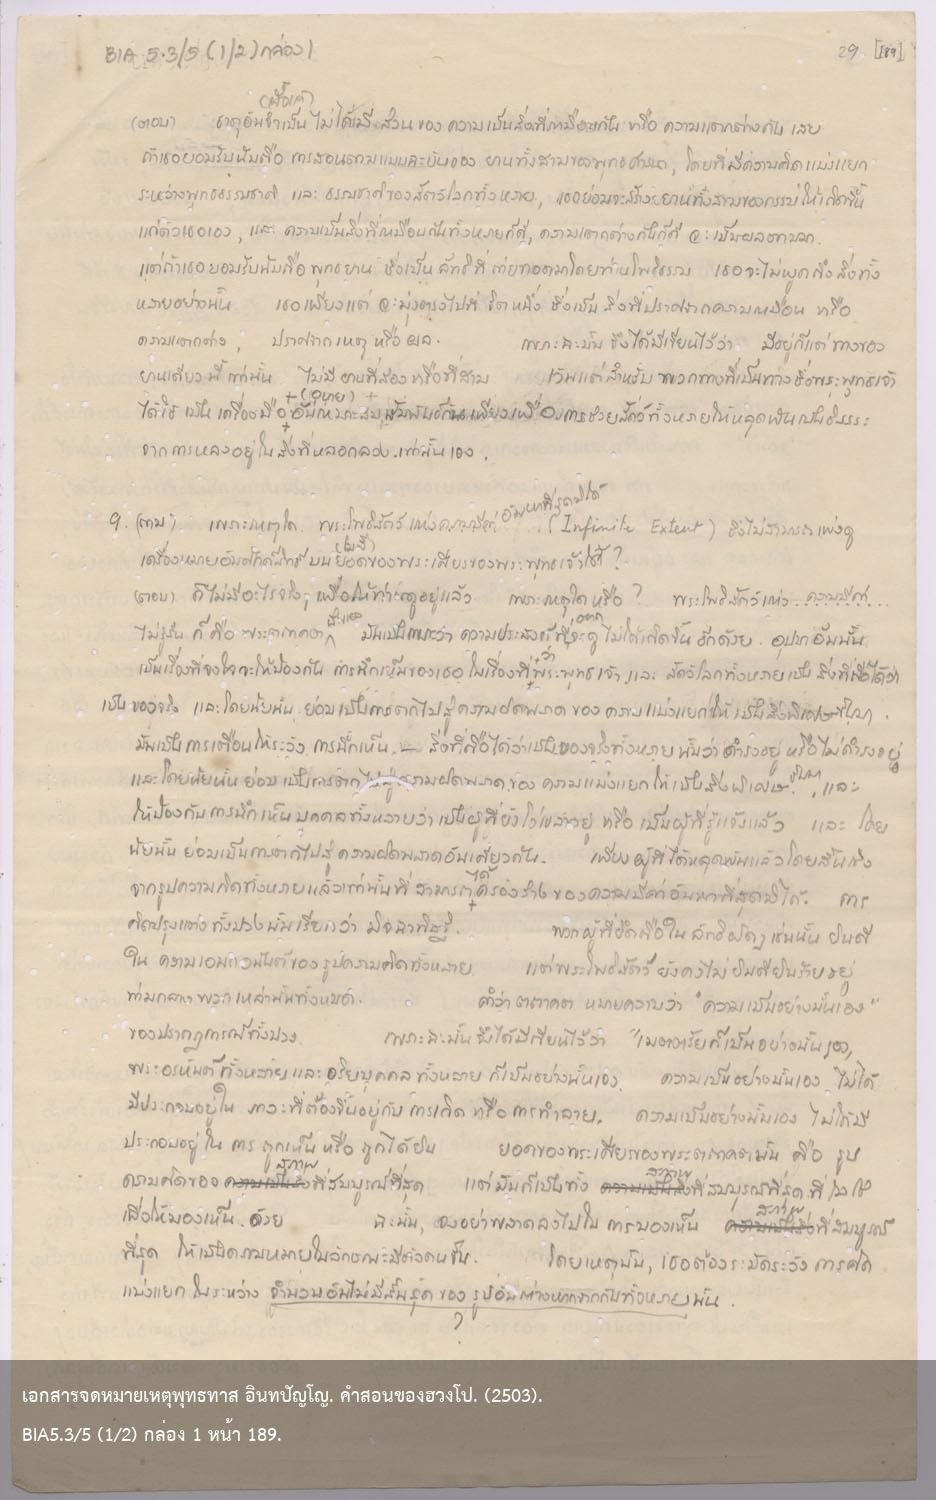 BIA 5.3/5 (1/2) กล่อง 1
29 [189]
(เนื้อแท้)
(ตอบ) ธาตุอันจำเป็น ไม่ได้มี ส่วน ของ ความเป็นสิ่งที่เหมือนกัน หรือ ความแตกต่างกัน เลย
ถ้าเธอยอมรับนับถือ การสอนตามแบบฉบับของ ยานทั้งสามของพุทธศาสนา, โดยที่มีความคิดแบ่งแยก
ระหว่างพุทธธรรมชาติ และ ธรรมชาติของสัตว์โลกทั้งหลาย, เธอย่อมจะสร้างยานทั้งสามของกรรมให้เกิดขึ้น
แก่ตัวเธอเอง, และ ความเป็นสิ่งที่เหมือนกันทั้งหลายก็ดี, ความแตกต่างกันก็ดี จะเป็นผลตามมา.
แต่ถ้าเธอยอมรับนับถือ พุทธยาน ซึ่งเป็น ลัทธิที่ ถ่ายทอดมาโดยท่านโพธิธรรม เธอจะไม่พูดถึง สิ่งทั้ง
หลายอย่างนั้น เธอเพียงแต่ จะมุ่งตรงไปที่ จิต หนึ่ง ซึ่งเป็น สิ่งที่ปราศจากความเหมือน หรือ
ความแตกต่าง, ปราศจาก เหตุ หรือ ผล. เพราะฉะนั้น จึงได้มีเขียนไว้ว่า มีอยู่ก็แต่ ทางของ
ยานเดียวนี้เท่านั้น ไม่มี ยานที่สอง หรือที่สาม เว้นแต่สำหรับ พวกทางที่เป็นทาง ซึ่งพระพุทธเจ้า
(อุบาย)
ได้ใช้ เป็น เครื่องมือ อันเหมาะสม เพียงเพื่อการช่วยสัตว์ทั้งหลายให้หลุดพ้นเป็นอิสระ
จากการหลงอยู่ในสิ่งที่หลอกลวง เท่านั้น เอง.
อันหาที่สุดมิได้
9. (ถาม) เพราะเหตุใด พระโพธิสัตว์ แห่งความมีค่า (Infinite Extent) จึงไม่สามารถเพ่งดู
เครื่องหมายอันศักดิ์สิทธิ์ บน ยอดของพระเศียรของพระพุทธเจ้าได้?
(ตอบ) ก็ไม่มีอะไรจริง, เพื่อให้ท่านดูอยู่แล้ว เพราะเหตุใด หรือ? พระโพธิสัตว์แห่ง ความมีค่า...
ไม่รู้สิ้น ก็ คือ พระตถาคต มันเป็นเพราะว่า ความประสงค์ที่จะดู ไม่ได้เกิดขึ้น อีกด้วย. อุปมาอันนั้น
เป็นเรื่องที่จงใจจะให้ป้องกัน การนึกเห็นของเธอ ในเรื่องที่ว่าพระพุทธเจ้า และ สัตว์โลกทั้งหลายเป็น สิ่งที่ถือได้ว่า
เป็นของจริง และโดยนัยนั้น ย่อมเป็นการตกไปสู่ ความผิดพลาด ของ ความแบ่งแยกให้เป็นสิ่งพิเศษขึ้นมา.
มันเป็น การเตือน ให้ระวัง การนึกเห็น.— สิ่งที่ถือได้ว่าเป็นของจริงทั้งหลายนั้นว่า ดำรงอยู่ หรือไม่ดำรงอยู่
และโดยนัยนั้นย่อมเป็นการตกไปสู่ความผิดพลาดของ ความแบ่งแยกให้เป็นสิ่งพิเศษขึ้นมา, และ
ให้ป้องกันการนึกเห็น บุคคลทั้งหลายว่า เป็นผู้ที่ยังโง่เขลาอยู่ หรือ เป็นผู้ที่รู้แจ้งแล้ว และ โดย
นัยนั้น ย่อมเป็นการตกไปสู่ ความผิดพลาดอันเดียวกัน. เพียงผู้ที่ได้หลุดพ้นแล้วโดยสิ้นเชิง
จากรูปความคิดทั้งหลายแล้วเท่านั้นที่สามารถ ของความมีค่าอันหาที่สุดมิได้. การ
คิดปรุงแต่งทั้งปวงนั้นเรียกว่า มิจฉาทิฏฐิ. พวกผู้ที่ยึดถือใน ลัทธิผิดๆ เช่นนั้น ยินดี
ใน ความเอนกอนันต์ของรูปความคิดทั้งหลาย แต่พระโพธิสัตว์ ยังคงไม่ยินดียินร้ายอยู่
ท่ามกลางพวกเหล่านั้นทั้งหมด. คำว่า ตถาคตา หมายความว่า "ความเป็นอย่างนั้นเอง"
ของปรากฏการณ์ทั้งปวง. เพราะฉะนั้นจึงได้มีเขียนไว้ว่า "เมตตรัยก็เป็นอย่างนั้นเอง,
พระอรหันต์ทั้งหลาย และ อริยบุคคลทั้งหลาย ก็เป็นอย่างนั้นเอง. ความเป็นอย่างนั้นเอง ไม่ได้
มีประกอบอยู่ใน ภาวะที่ต้องขึ้นอยู่กับ การเกิด หรือ การทำลาย. ความเป็นอย่างนั้นเอง ไม่ได้มี
ประกอบอยู่ ใน การ ถูกเห็น หรือ ถูกได้ยิน ยอดของพระเศียรของพระตถาคตานั้น คือ รูป
ความคิดของ สภาพที่สมบูรณ์ที่สุด แต่มันก็เป็นทั้ง สภาพที่สมบูรณ์ที่สุด ที่ไม่ใช่
เพื่อให้มองเห็น ด้วย ฉะนั้น, จงอย่าพลาดลงไปใน การมองเห็น สภาพที่สมบูรณ์
ที่สุด ให้เป็นความหมายในลักษณะ โดยเหตุนั้น, เธอต้องระมัดระวัง การคิด
แบ่งแยก ในระหว่าง จำนวนอันไม่มีสิ้นสุด ของ รูปอันต่างหากจากกันทั้งหลายนั้น.
?
เอกสารจดหมายเหตุพุทธทาส อินทปัญโญ. คำสอนของฮวงโป. (2503).
BIA5.3/5 (1/2) กล่อง 1 หน้า 189.